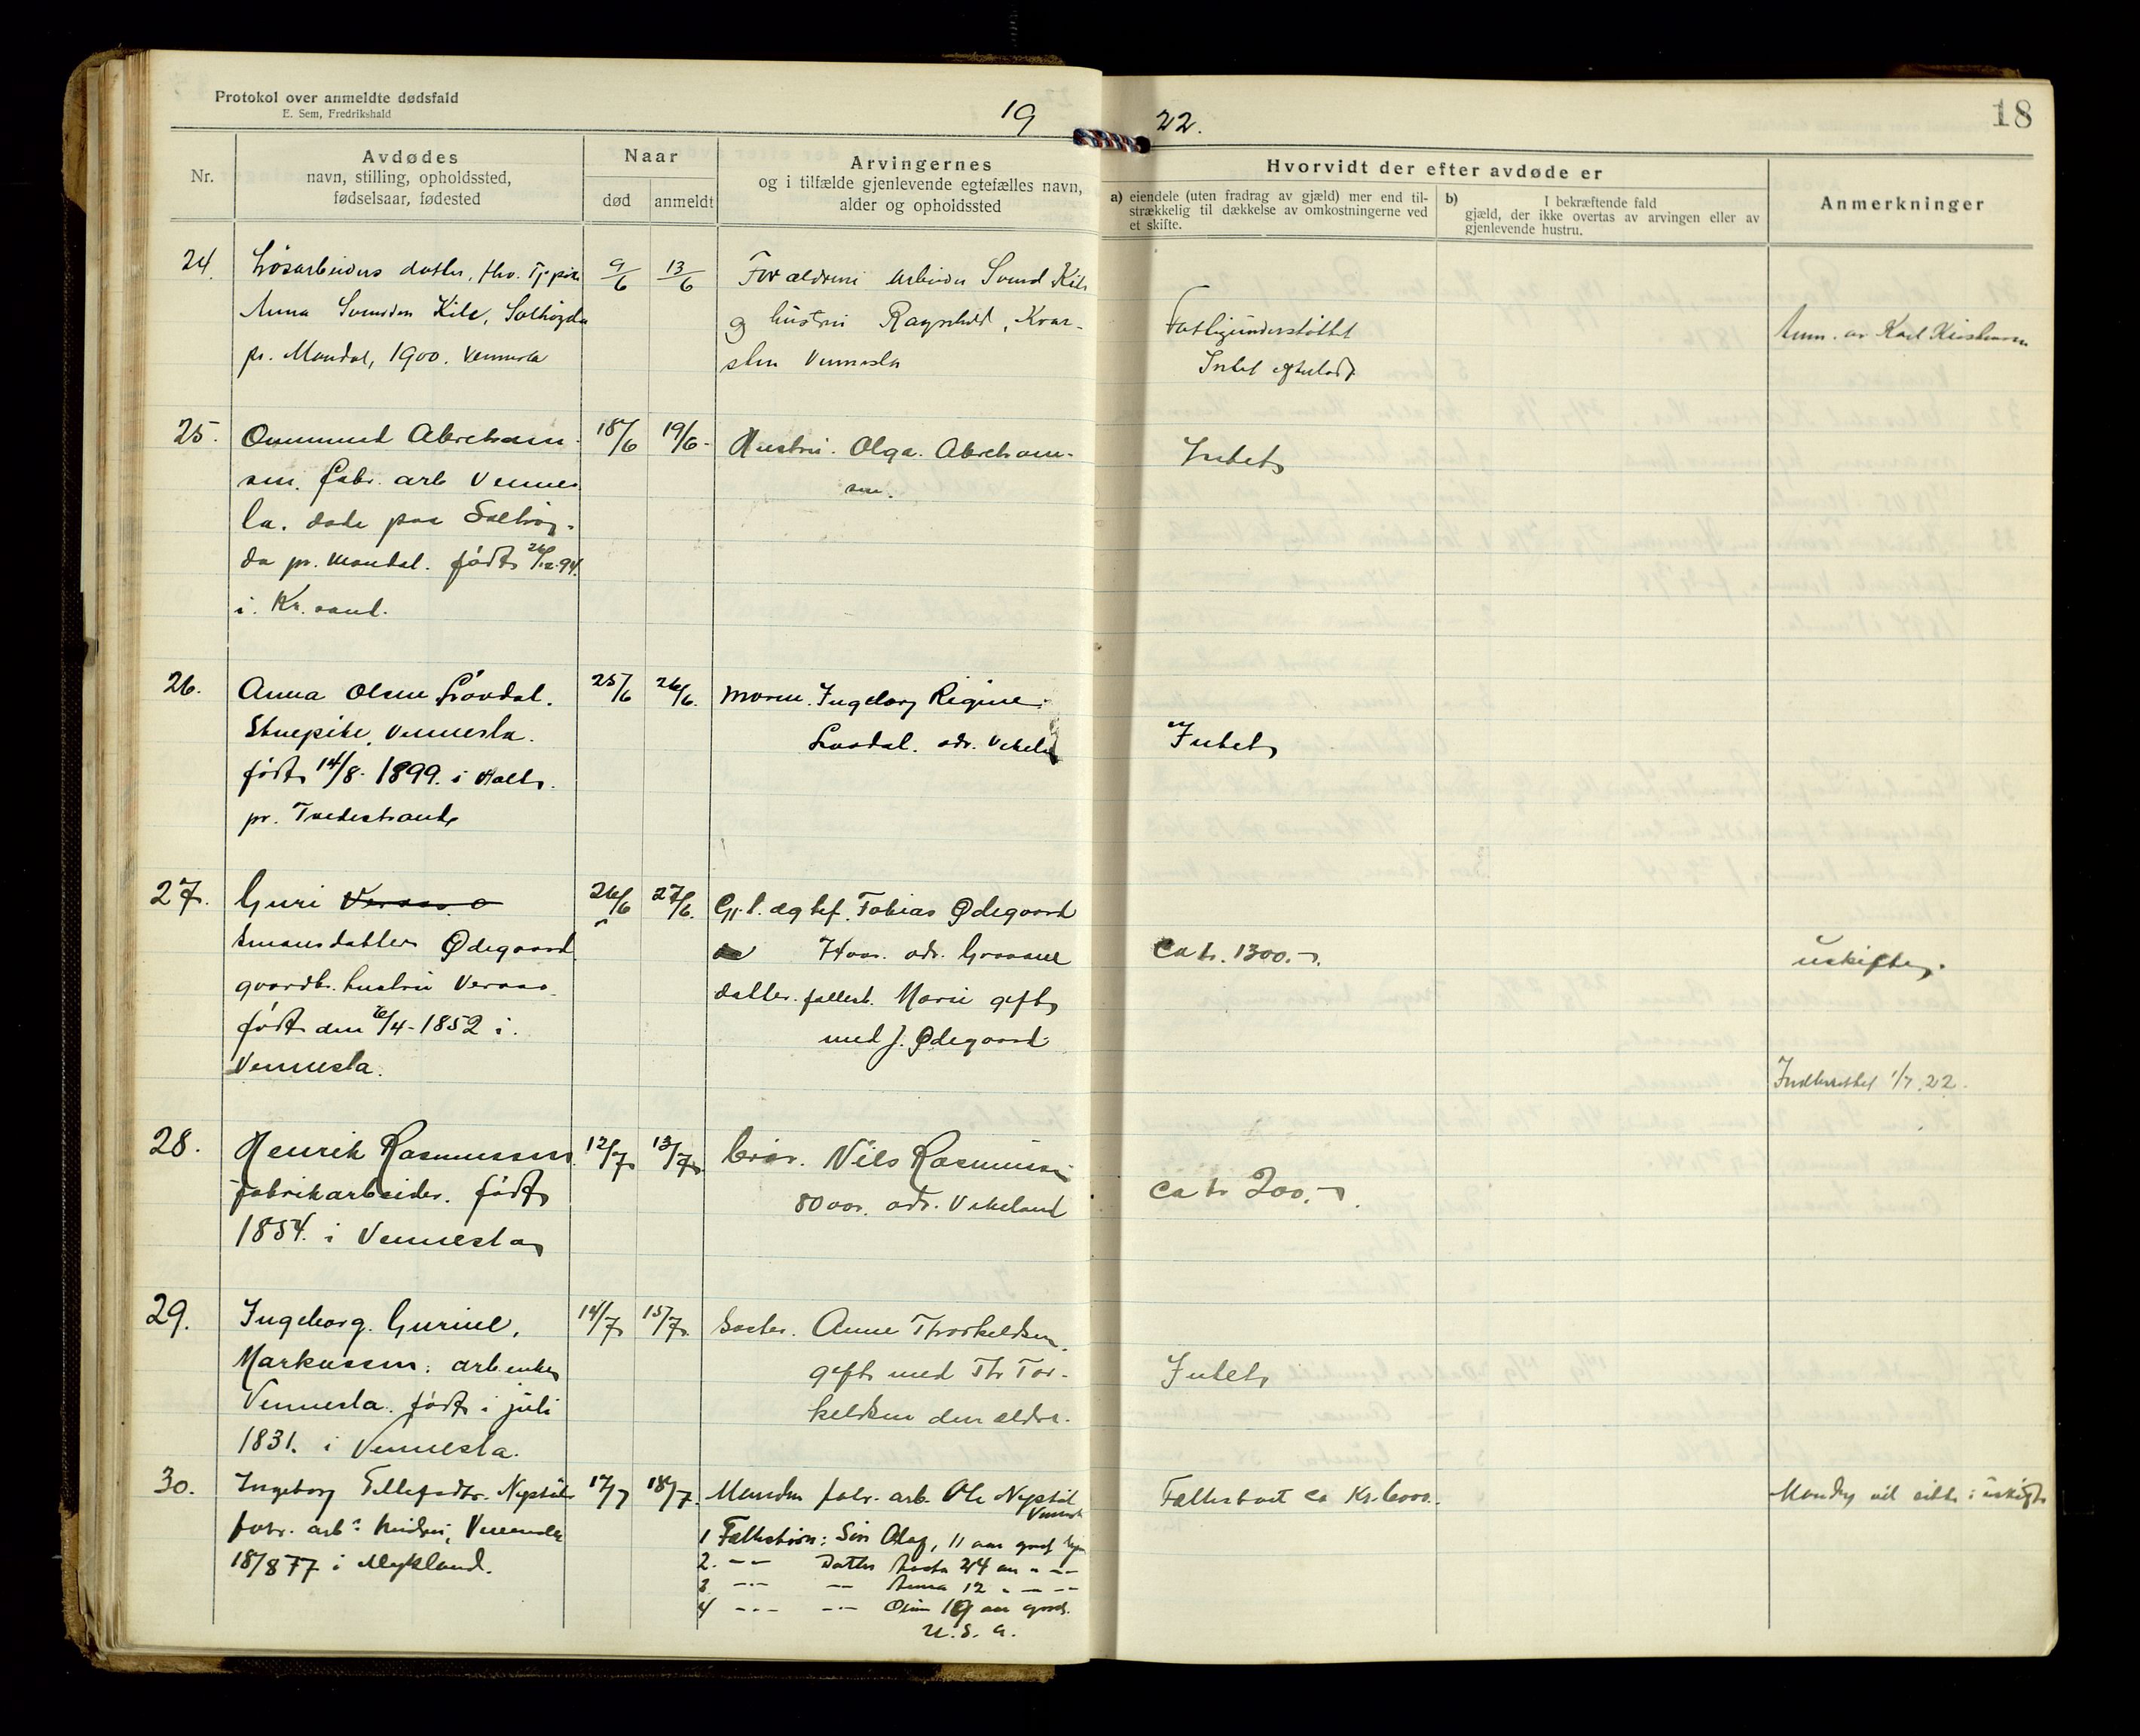 Protokol over anmeldte dødsfald
E. Sem, Fredrikshald
19 22.
18
Nr.
Avdødes
navn, stilling, opholdssted,
fødselsaar, fødested
Naar
død
anmeldt
Arvingernes
og i tilfælde gjenlevende egtefælles navn,
alder og opholdssted
Hvorvidt der efter avdøde er
a) eiendele (uten fradrag av gjæld) mer end til-
strækkelig til dækkelse av omkostningerne ved
et skifte.
b) I bekræftende fald
gjæld, der ikke overtas av arvingen eller av
gjenlevende hustru.
Anmerkninger
24.
Løsarbeiders datter, fhv.
Anna Svendsen Kile, Solhøgda
pr. Mandal, 1900. Vennesla
9/6
13/6
Forældrene arbeider Svend Kile
og hustru Ragnhild, Kvar-
sten Vennesla
Fattigunderstøttet
Intet efterladt
Anm. av Karl
25.
Ommund Abraham-
sen. fabr. arb Vennes
la. døde paa Solhøg-
da pr. Mandal. født 26/12.94.
i. Kr.sand.
18/6
19/6-
Hustru. Olga. Abraham-
sen.
Intet
26.
Anna Olsen Løvdal.
Stuepike, Vennesla.
født 14/8-1899. i Holt.
pr. Tvedestrand
25/6
26/6.
Moren. Ingeborg Regine
Løvdal. adr. Vikeland
Intet
27.
Guri
Ødegaard
gaardbr. hustru Veraas.
født den 26/4-1852 i.
Vennesla.
26/6
27/6.
Gj.l. ægtef. Tobias Ødegaard
74 aar. adr. Graaane
datter. fællesb. Marie gift
med J. Ødegaard
Ca kr. 1300.-
uskifte.
Indberettet 1/7.22.
28.
Henrik Rasmussen.
fabrikarbeider. født
1854. i Vennesla
12/7
13/7.
bror. Nils Rasmussen
80 aar. adr. Vikeland
ca kr 200.-
29.
Ingeborg. Gurine.
Markussen. arb.enke
Vennesla. født i juli
1831. i Vennesla.
14/7
15/7.
Søster. Anne Thorkeldsen.
gift med Th Tor-
keldsen den ældre.
Intet
30.
Ingeborg Tellefsdtr. Nepstøl
fabr. arb: hustru, Vennesla
18/8 77 i Mykland.
17/7
18/7.
Manden fabr. arb. Ole Nepstøl
Vennesla
1 Fællesbarn: Søn Olaf, 11 aar
2. -- Datter 24 aar " --
3 -- -- Anna 12 " -- --
4 -- -- 19 aar
U.S.A.
Fællesboet ca Kr. 6000.
Manden vil sitte i uskiftet